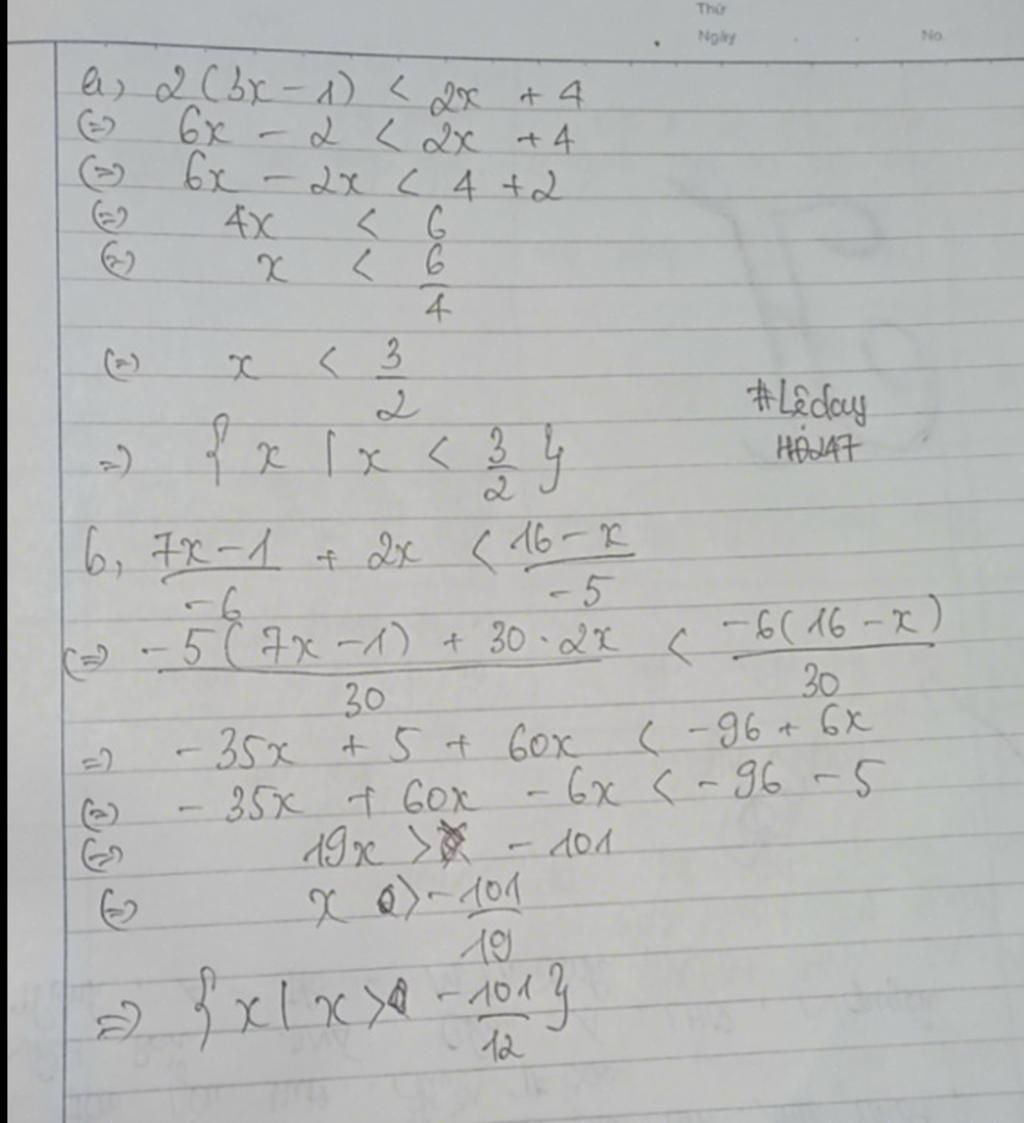 Thứ
Ngày No
a, 2(3x - 1) < 2x + 4
(=) 6x - 2 < 2x + 4
(=) 6x - 2x < 4 + 2
(=) 4x < 6
(=) x < 6/4
(=) x < 3/2
=) { x | x < 3/2 }
#Lệday
HĐ247
b, (7x - 1)/(-6) + 2x < (16 - x)/(-5)
(=) (-5(7x - 1) + 30 · 2x)/30 < (-6(16 - x))/30
=) - 35x + 5 + 60x < - 96 + 6x
(=) - 35x + 60x - 6x < - 96 - 5
(=) 19x > - 101
(=) x > -101/19
=) { x | x > -101/12 }